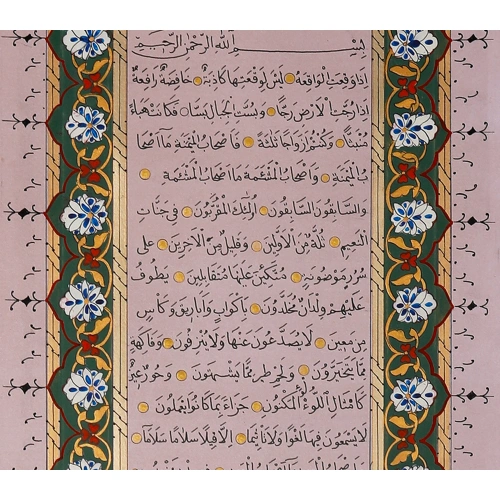 بسم الله الرحمن الرحيم
اذا وقعت الواقعة ليس لوقعتها كاذبة خافضة رافعة
اذا رجت الارض رجا وبست الجبال بسا فكانت هباء
منبثا وكنتم ازواجا ثلثة فاصحاب الميمنة ما اصحا
ب الميمنة واصحاب المشئمة ما اصحاب المشئمة
والسابقون السابقون اولئك المقربون في جنات
النعيم ثلة من الاولين وقليل من الآخرين على
سرر موضونة متكئين عليها متقابلين يطوف
عليهم ولدان مخلدون باكواب واباريق وكأس
من معين لا يصدعون عنها ولا ينزفون وفاكهة
مما يتخيرون ولحم طير مما يشتهون وحور عين
كامثال اللؤلؤ المكنون جزاء بما كانوا يعملون
لا يسمعون فيها لغوا ولا تاثيما الا قيلا سلاما سلاما